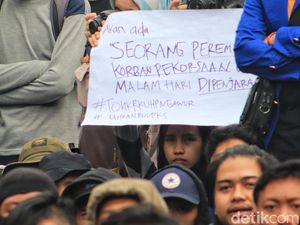 Akan ada
"SEORANG PEREM
KORBAN PEKORSAAN
MALAM HARI DIPENJARA
#TOLAKRKUHPNGAWUR
detikcom